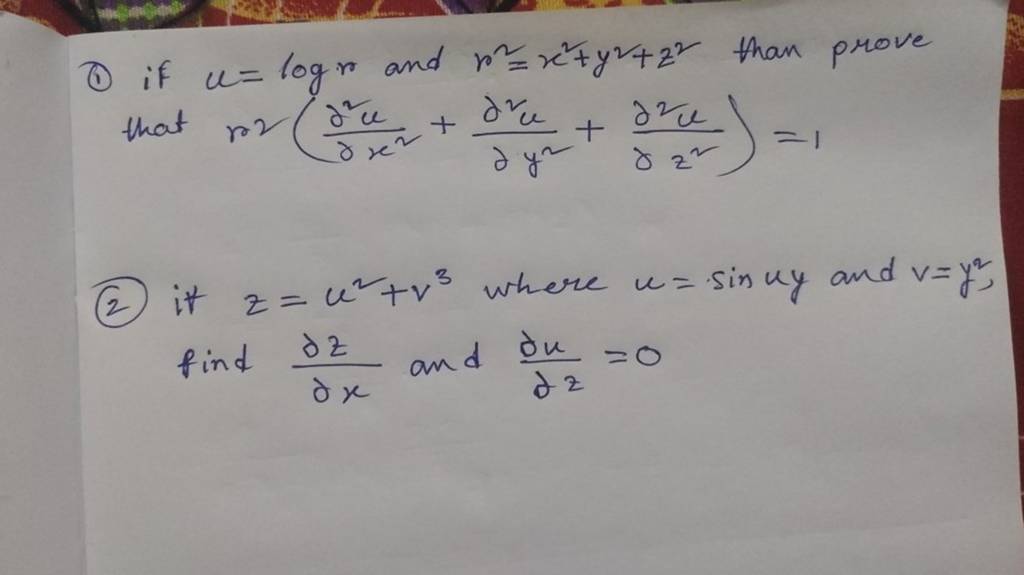 ① if u = log r and r² = x²+y²+z² than prove
that r2 (∂²u/∂x² + ∂²u/∂y² + ∂²u/∂z²) = 1
② if z = u²+v³ where u = sin uy and v = y²,
find ∂z/∂x and ∂u/∂z = 0